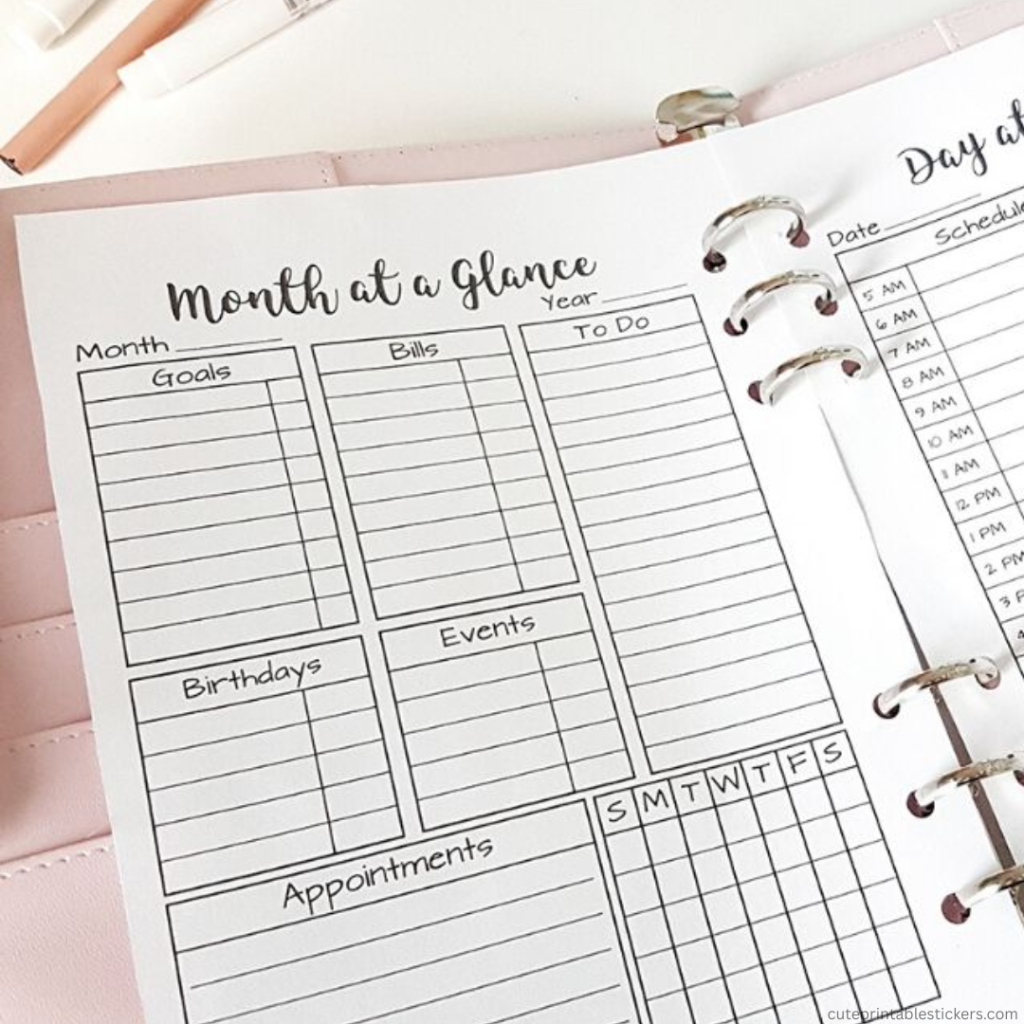 Month at a Glance
Month
Year
Goals
Bills
To Do
Birthdays
Events
Appointments
S M T W T F S
Day at
Date
Schedule
5 AM
6 AM
7 AM
8 AM
9 AM
10 AM
11 AM
12 PM
1 PM
2 PM
3 P
cuteprintablestickers.com